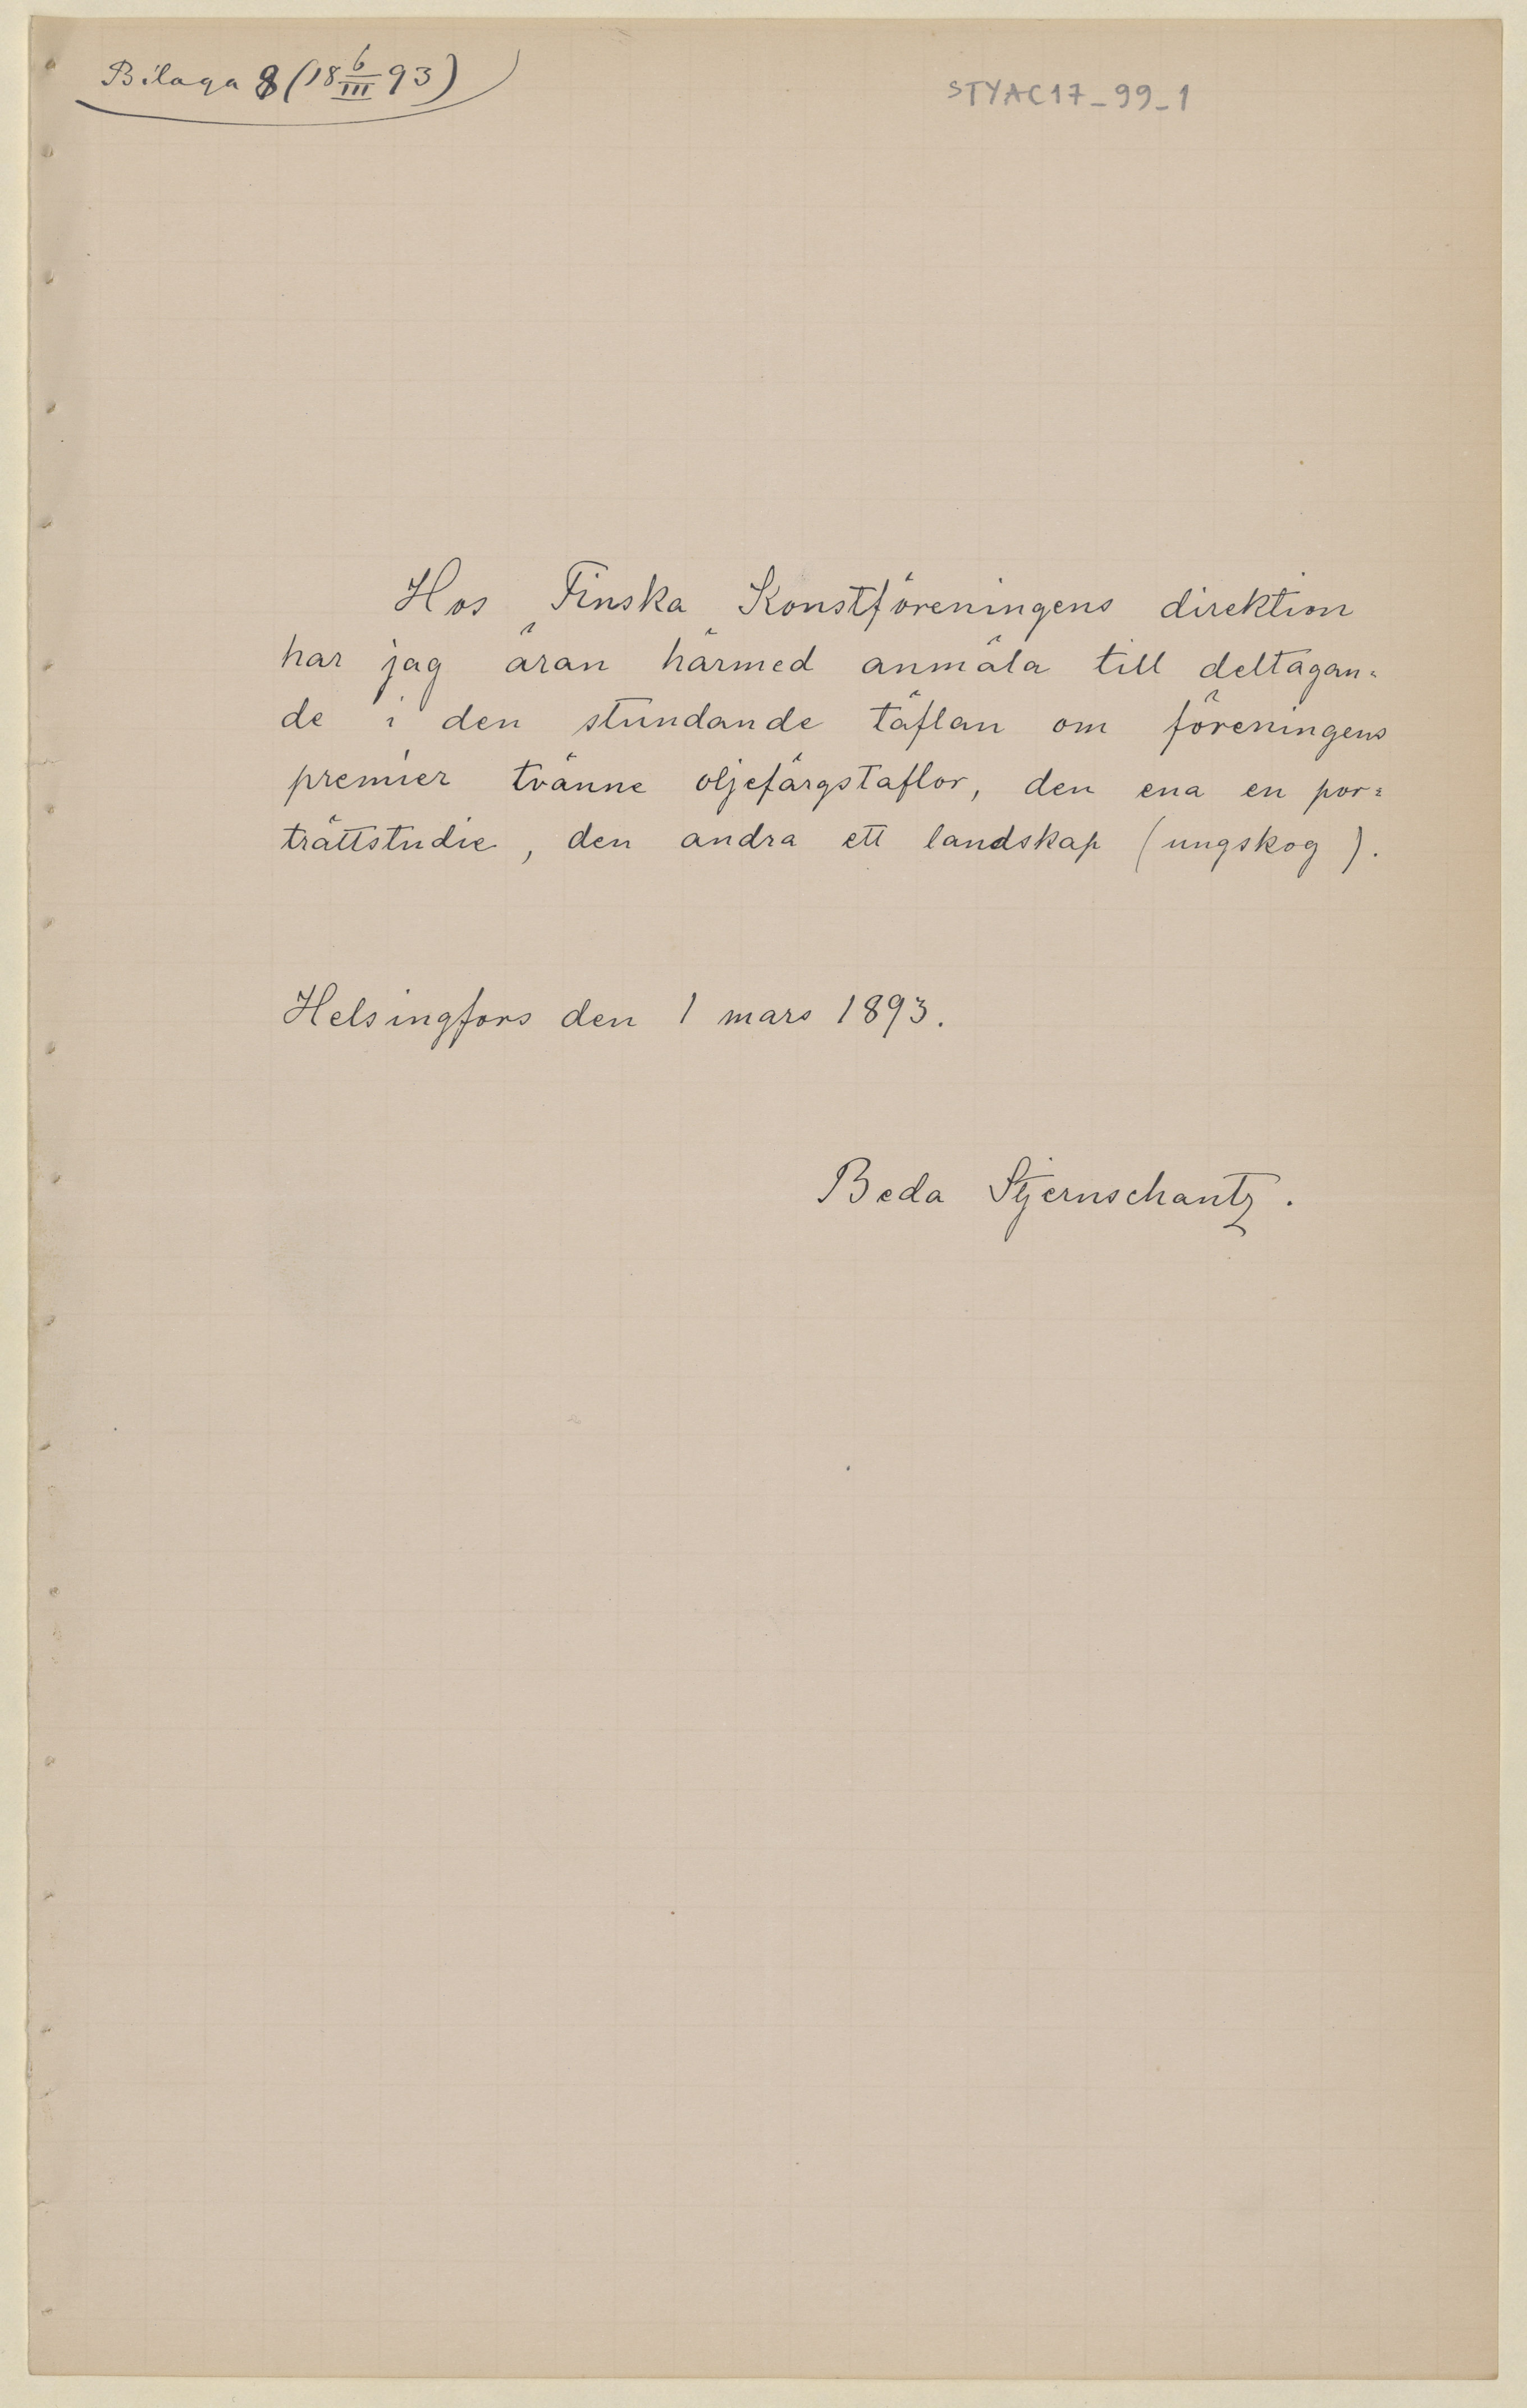 Bilaga 8 (18 6/III 93)
STYAC17_99_1
Hos Finska Konstföreningens direktion
har jag äran härmed anmäla till deltagan=
de i den stundande täflan om föreningens
premier tvänne oljefärgstaflor, den ena en por=
trättstudie, den andra ett landskap (ungskog).
Helsingfors den 1 mars 1893.
Beda Stjernschantz.